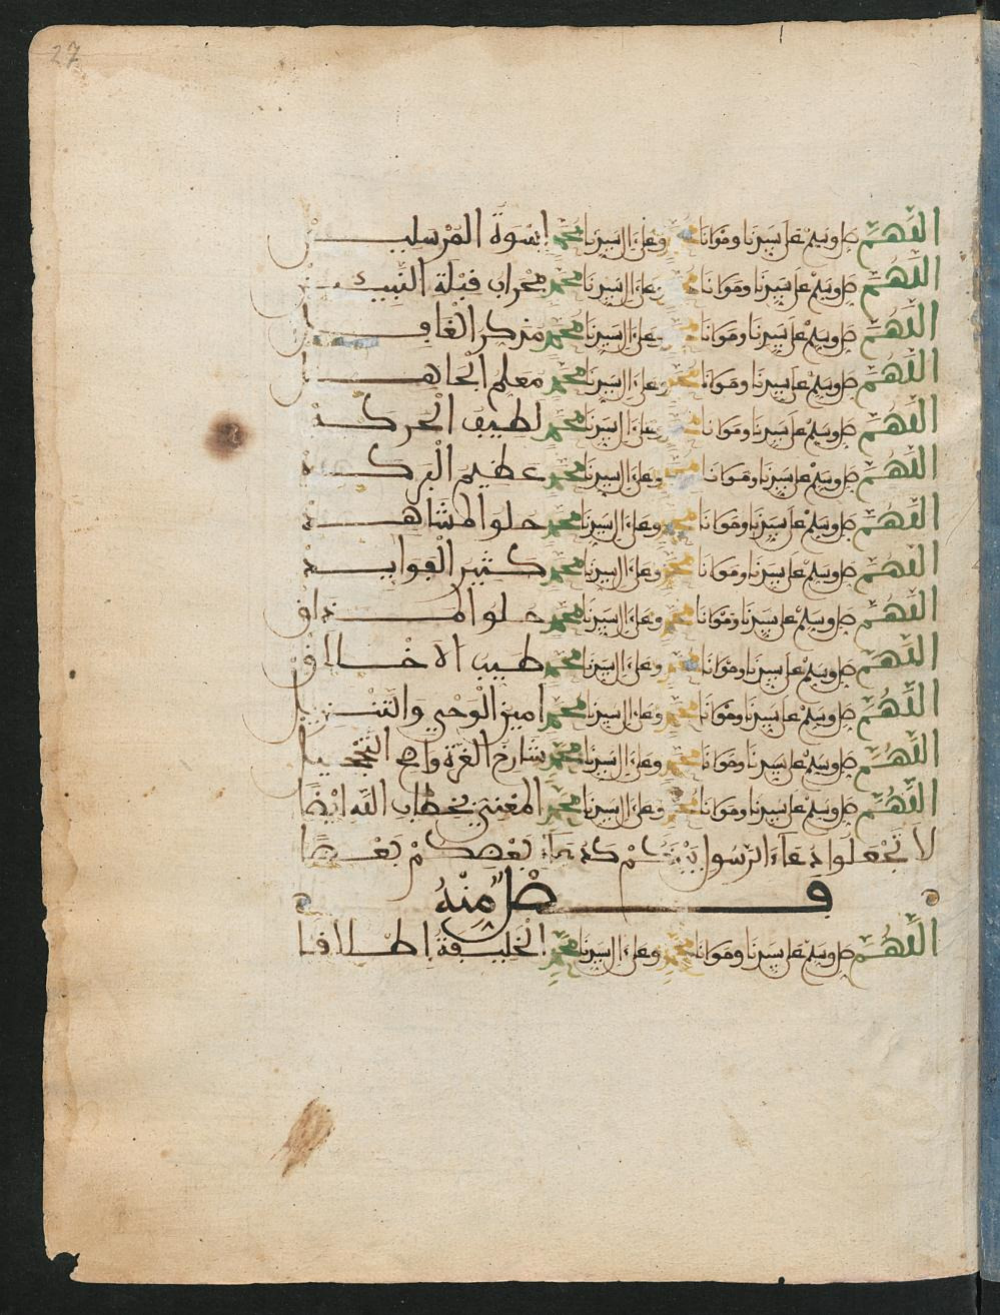 27
اللهم صل وسلم على سيدنا ومولانا محمد وعلى ءال سيدنا محمد إسوة المرسلين
اللهم صل وسلم على سيدنا ومولانا محمد وعلى ءال سيدنا محمد محراب قبلة النبيين
اللهم صل وسلم على سيدنا ومولانا محمد وعلى ءال سيدنا محمد مذكر الغافلين
اللهم صل وسلم على سيدنا ومولانا محمد وعلى ءال سيدنا محمد معلم الجاهلين
اللهم صل وسلم على سيدنا ومولانا محمد وعلى ءال سيدنا محمد لطيف الحركة
اللهم صل وسلم على سيدنا ومولانا محمد وعلى ءال سيدنا محمد عظيم البركة
اللهم صل وسلم على سيدنا ومولانا محمد وعلى ءال سيدنا محمد حلو المشاهدة
اللهم صل وسلم على سيدنا ومولانا محمد وعلى ءال سيدنا محمد كثير الفوايد
اللهم صل وسلم على سيدنا ومولانا محمد وعلى ءال سيدنا محمد حلو المذاق
اللهم صل وسلم على سيدنا ومولانا محمد وعلى ءال سيدنا محمد طيب الاخلاق
اللهم صل وسلم على سيدنا ومولانا محمد وعلى ءال سيدنا محمد امين الوحي والتنزيل
اللهم صل وسلم على سيدنا ومولانا محمد وعلى ءال سيدنا محمد شارخ الغرة واضح التحجيل
اللهم صل وسلم على سيدنا ومولانا محمد وعلى ءال سيدنا محمد المعتني بخطاب الله ايضا
لا تجعلوا دعاء الرسول بينكم كدعاء بعضكم بعضا
فصل منه
اللهم صل وسلم على سيدنا ومولانا محمد وعلى ءال سيدنا محمد الخليفة إطلاقا